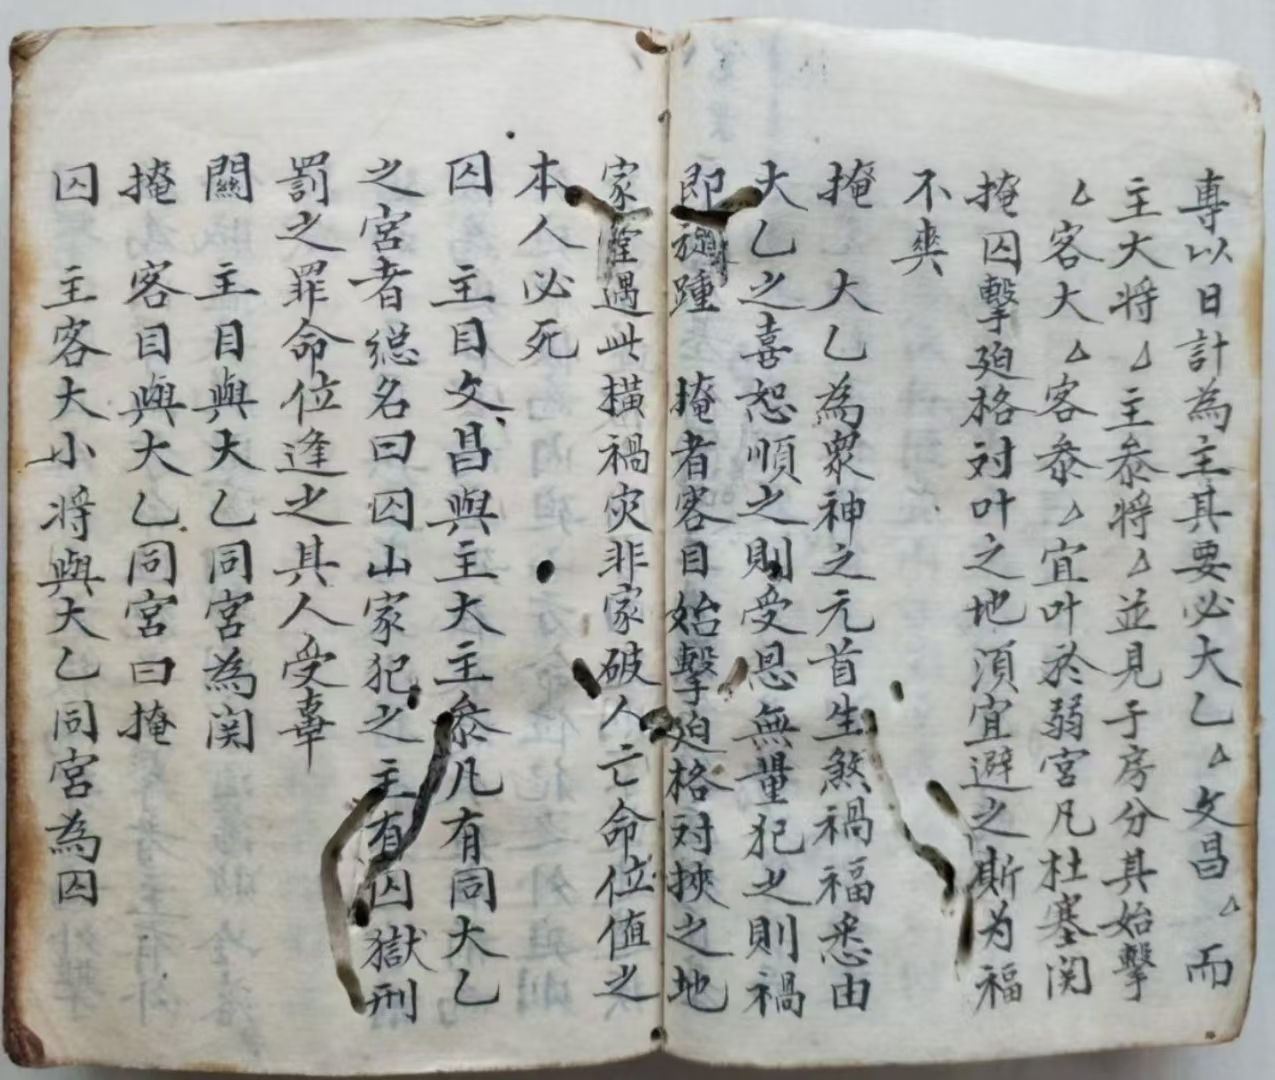 專以日計為主其要必大乙△文昌△而
主大将△主叅将△並見子房分其始擊
△客大△客叅△宜叶於弱宮凡杜塞関
掩囚擊廹格対叶之地須宜避之斯为福
不爽
掩 大乙為衆神之元首生煞禍福悉由
大乙之喜恕順之則受恩無量犯之則禍
即踵 掩者客目始擊廹格対挾之地
家遇此橫禍灾非家破人亡命位值之
本人必死
囚 主目文昌與主大主叅凡有同大乙
之宮者総名曰囚山家犯之主有囚獄刑
罰之罪命位逢之其人受辜
關 主目與大乙同宮為関
掩 客目與大乙同宮曰掩
囚 主客大小将與大乙同宮為囚